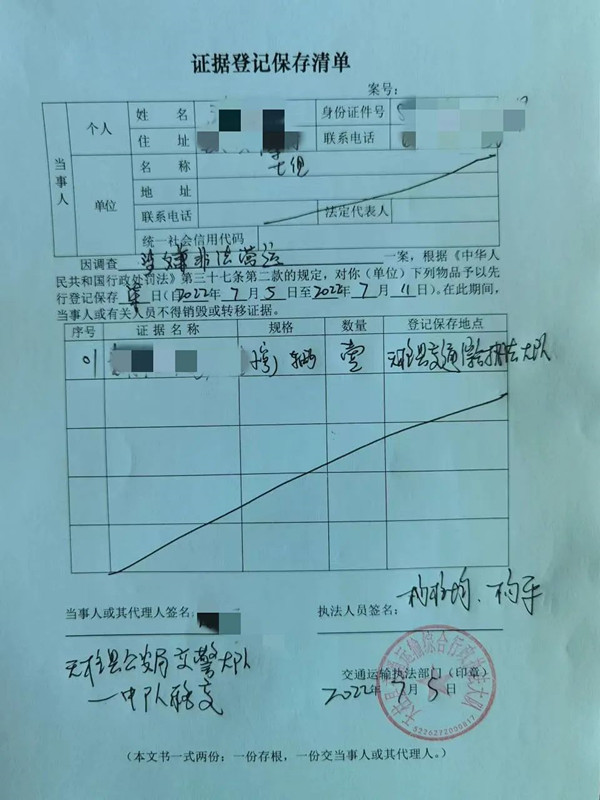 证据登记保存清单
案号：
当事人
个人
姓 名
身份证件号
住 址
联系电话
七组
单位
名 称
地 址
联系电话
法定代表人
统一社会信用代码
因调查 涉嫌非法营运 一案，根据《中华人
民共和国行政处罚法》第三十七条第二款的规定，对你（单位）下列物品予以先
行登记保存 柒 日（自2022年7月5日至2022年7月11日）。在此期间，
当事人或有关人员不得销毁或转移证据。
序号 证据名称 规格 数量 登记保存地点
01 辆 壹 天柱县交通综合执法大队
当事人或其代理人签名：
执法人员签名：
天柱县公安局交警大队
一中队移交
交通运输执法部门（印章）
2022年7月5日
天柱县交通运输综合行政执法大队
5226272000817
（本文书一式两份：一份存根，一份交当事人或其代理人。）